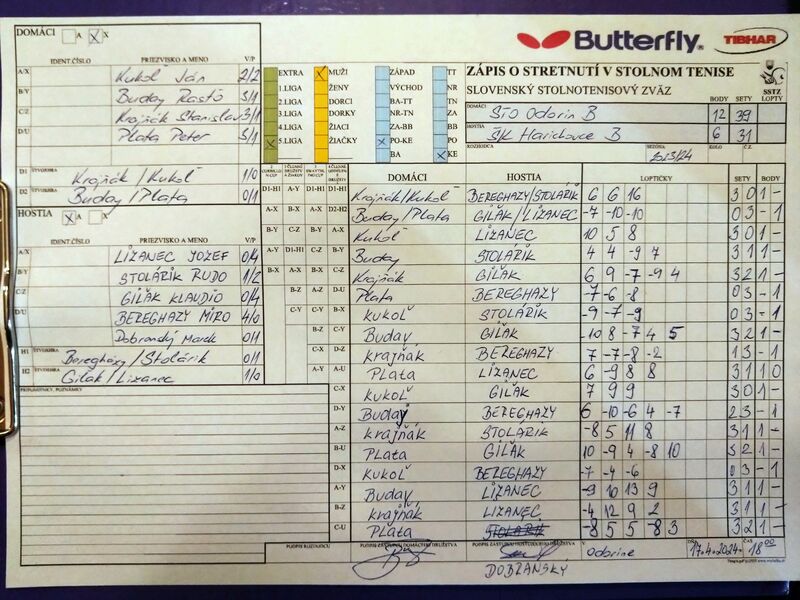 DOMÁCI A X
Butterfly TIBHAR
IDENT.ČÍSLO PRIEZVISKO A MENO V/P
A/X Kukoľ Ján 2/2
B/Y Buday Rastó 3/1
C/Z Krajňák Stanislav 3/1
D/U Plata Peter 3/1
D1 ŠTVORHRA Krajňák/Kukoľ 1/0
D2 ŠTVORHRA Buday/Plata 0/1
HOSTIA A X
IDENT.ČÍSLO PRIEZVISKO A MENO V/P
A/X LIZANEC JOZEF 0/4
B/Y STOLÁRIK RUDO 1/2
C/Z GIĽÁK KLAUDIO 0/4
D/U BEREGHAZY MIRO 4/0
Dobranský Marek 0/1
H1 ŠTVORHRA Bereghazy/Stolárik 0/1
H2 ŠTVORHRA Giľák/Lizanec 1/0
PRIPOMIENKY, POZNÁMKY
EXTRA MUŽI ZÁPAD TT
1.LIGA ŽENY VÝCHOD NR
2.LIGA DORCI BA-TT TN
3.LIGA DORKY NR-TN ZA
4.LIGA ŽIACI ZA-BB BB
5.LIGA ŽIAČKY PO-KE PO
BA KE
ZÁPIS O STRETNUTÍ V STOLNOM TENISE
SLOVENSKÝ STOLNOTENISOVÝ ZVÄZ
SSTZ
BODY SETY LOPTY
DOMÁCI STO Odorín B 12 39
HOSTIA ŠK Harichovce B 6 31
ROZHODCA SEZÓNA 2023/24 KOLO Č.Z.
DOMÁCI HOSTIA LOPTIČKY SETY BODY
D1-H1 A-Y D1-H1 D1-H1 Krajňák/Kukoľ BEREGHAZY/STOLÁRIK 6 6 16 3 0 1 -
A-X B-X A-X D2-H2 Buday/Plata GIĽÁK/LIZANEC -7 -10 -10 0 3 - 1
B-Y C-Z B-Y A-X Kukoľ LIZANEC 10 5 8 3 0 1 -
A-Y D1-H1 C-Z B-Y Buday STOLÁRIK 4 4 -9 7 3 1 1 -
B-X A-X B-X C-Z Krajňák GIĽÁK 6 9 -7 -9 4 3 2 1 -
B-Z A-Z D-U Plata BEREGHAZY -7 -6 -8 0 3 - 1
C-Y C-Y B-X KUKOĽ STOLÁRIK -9 -7 -9 0 3 - 1
B-Z C-Y Buday GIĽÁK -10 8 -7 4 5 3 2 1 -
C-X D-Z Krajňák BEREGHAZY 7 -7 -8 -2 1 3 - 1
A-Y A-U Plata LIZANEC 6 -9 8 8 3 1 1 0
C-X Kukoľ GIĽÁK 7 9 9 3 0 1 -
D-Y Buday BEREGHAZY 6 -10 -6 4 -7 2 3 - 1
A-Z Krajňák STOLÁRIK -8 5 11 8 3 1 1 -
B-U Plata GIĽÁK 10 -9 4 -8 10 3 2 1 -
D-X Kukoľ BEREGHAZY -7 -4 -6 0 3 - 1
A-Y Buday LIZANEC -9 10 13 9 3 1 1 -
B-X Krajňák LIZANEC -4 12 9 2 3 1 1 -
C-U Plata STOLÁRIK -8 5 5 -8 3 3 2 1 -
PODPIS ROZHODCU PODPIS ZÁSTUPCU DOMÁCEHO DRUŽSTVA PODPIS ZÁSTUPCU HOSŤUJÚCEHO DRUŽSTVA V Odoríne DŇA 17.4.2024 ČAS 18 00
DOBRANSKY